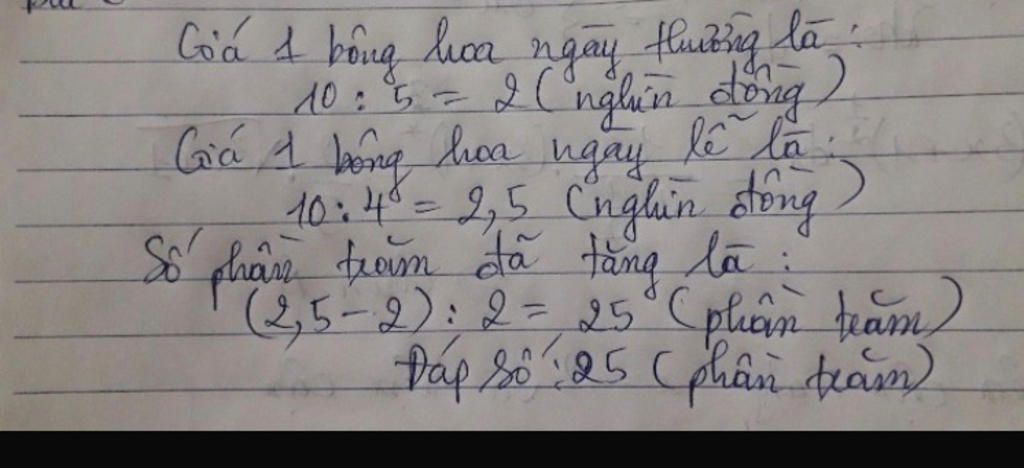 Giá 1 bông hoa ngày thường là :
10 : 5 = 2 ( nghìn đồng )
Giá 1 bông hoa ngày lễ là :
10 : 4 = 2,5 ( nghìn đồng )
Số phần trăm đã tăng là :
(2,5 - 2) : 2 = 25 ( phần trăm )
Đáp số : 25 ( phần trăm )